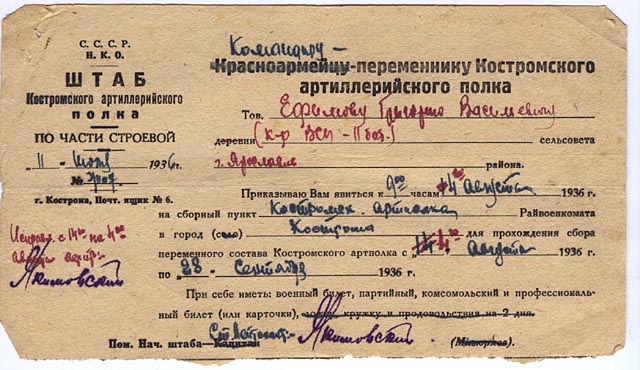 С. С. С. Р.
Н. К. О.
ШТАБ
Костромского артиллерийского
полка
ПО ЧАСТИ СТРОЕВОЙ
„ 11 „ 1936 г.
№
г. Кострома, Почт. ящик № 6.
с 14⁰⁰ на 4⁰⁰
августа
Якимовский
Командиру –
Красноармейцу-переменнику Костромского
артиллерийского полка
Тов. Ефимову Григорию Васильевичу
деревни сельсовета
г. Ярославль района.
Приказываю Вам явиться к 9⁰⁰ часам августа 1936 г.
на сборный пункт Костромск. артполка Райвоенкомата
в город (село) Кострома для прохождения сбора
переменного состава Костромского артполка с „ августа 1936 г.
по 23 - сентября 1936 г.
При себе иметь: военный билет, партийный, комсомольский и профессиональ-
ный билет (или карточки), ложку, кружку и продовольствия на 2 дня.
Ст. Лейтенант:- Якимовский
Пом. Нач. штаба—Капитан